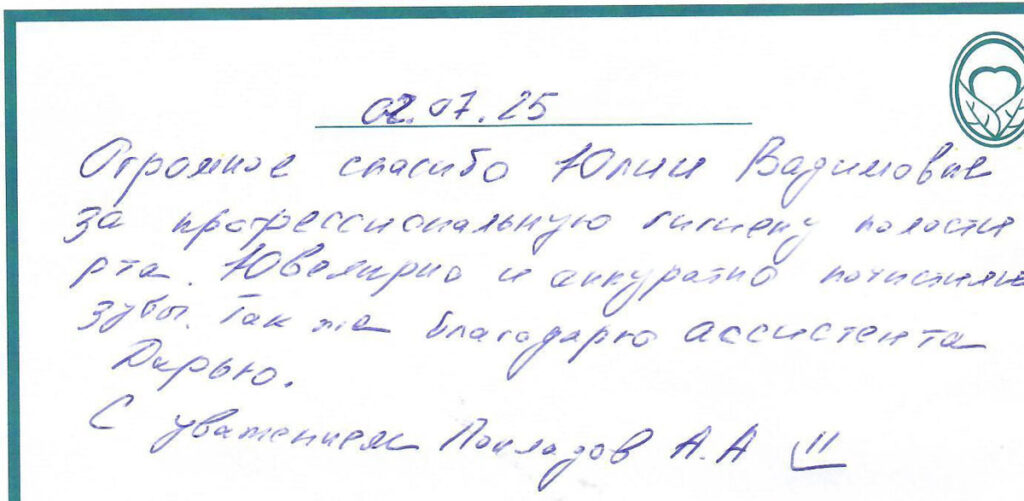 02.07.25
Огромное спасибо Юлии Вадимовне
за профессиональную гигиену полости
рта. Ювелирно и аккуратно почистили
зубы. Так же благодарю ассистента
Дарью.
С уважением Покладов А.А